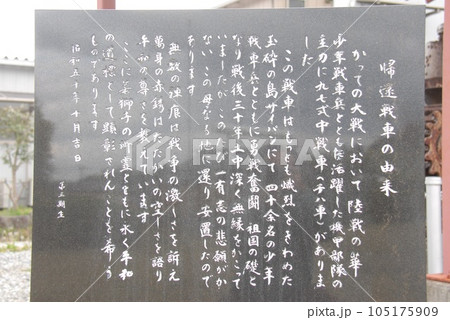 帰還戦車の由来
かつての大戦において 陸戦の華
少年戦車兵とともに活躍した機甲部隊の
主力に九七式中戦車(チハ車)がありま
した
この戦車はもっとも熾烈をきわめた
玉砕の島サイパンにて 四十余名の少年
戦車兵とともに勇戦奮闘 祖国の礎と
なり戦後三十年土中深く無縁をかこって
いましたが このたび一有志の悲願がか
ない この母なる地に還り安置したので
あります
無数の弾痕は戦争の激しさを訴え
満身の赤錆はたたかいの空しさを語り
平和の尊さを教えています
ここに若獅子の御霊とともに永く平和
の道標として顕彰されんことを希う
ものであります
昭和五十年十月吉日
第二期生
105175909